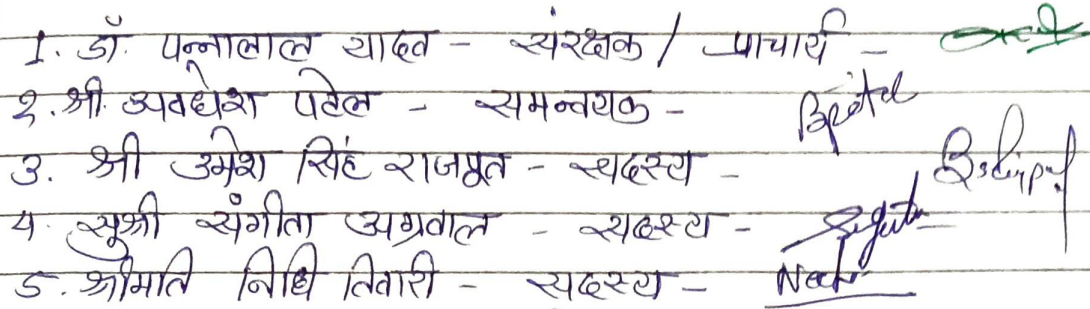 1. डॉ. पन्नालाल यादव - संरक्षक / प्राचार्य -
2. श्री. अवधेश पटेल - समन्वयक -
3. श्री उमेश सिंह राजपूत - सदस्य -
4. सुश्री संगीता अग्रवाल - सदस्य -
5. श्रीमति निधि तिवारी - सदस्य -